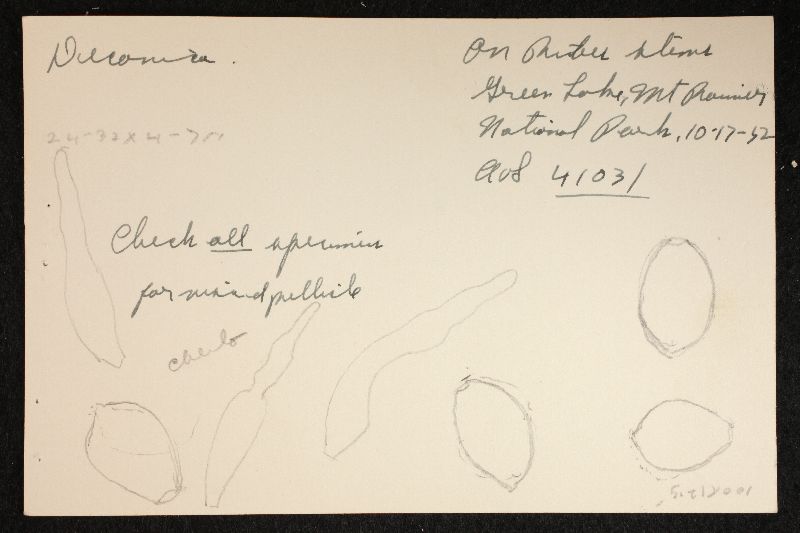 Deconica.
On Rubus stems
Green Lake, Mt Rainier
National Park, 10-17-52
AHS 41031
24-32 x 4-7 µ
Check all specimens
for pellicle
cheilo